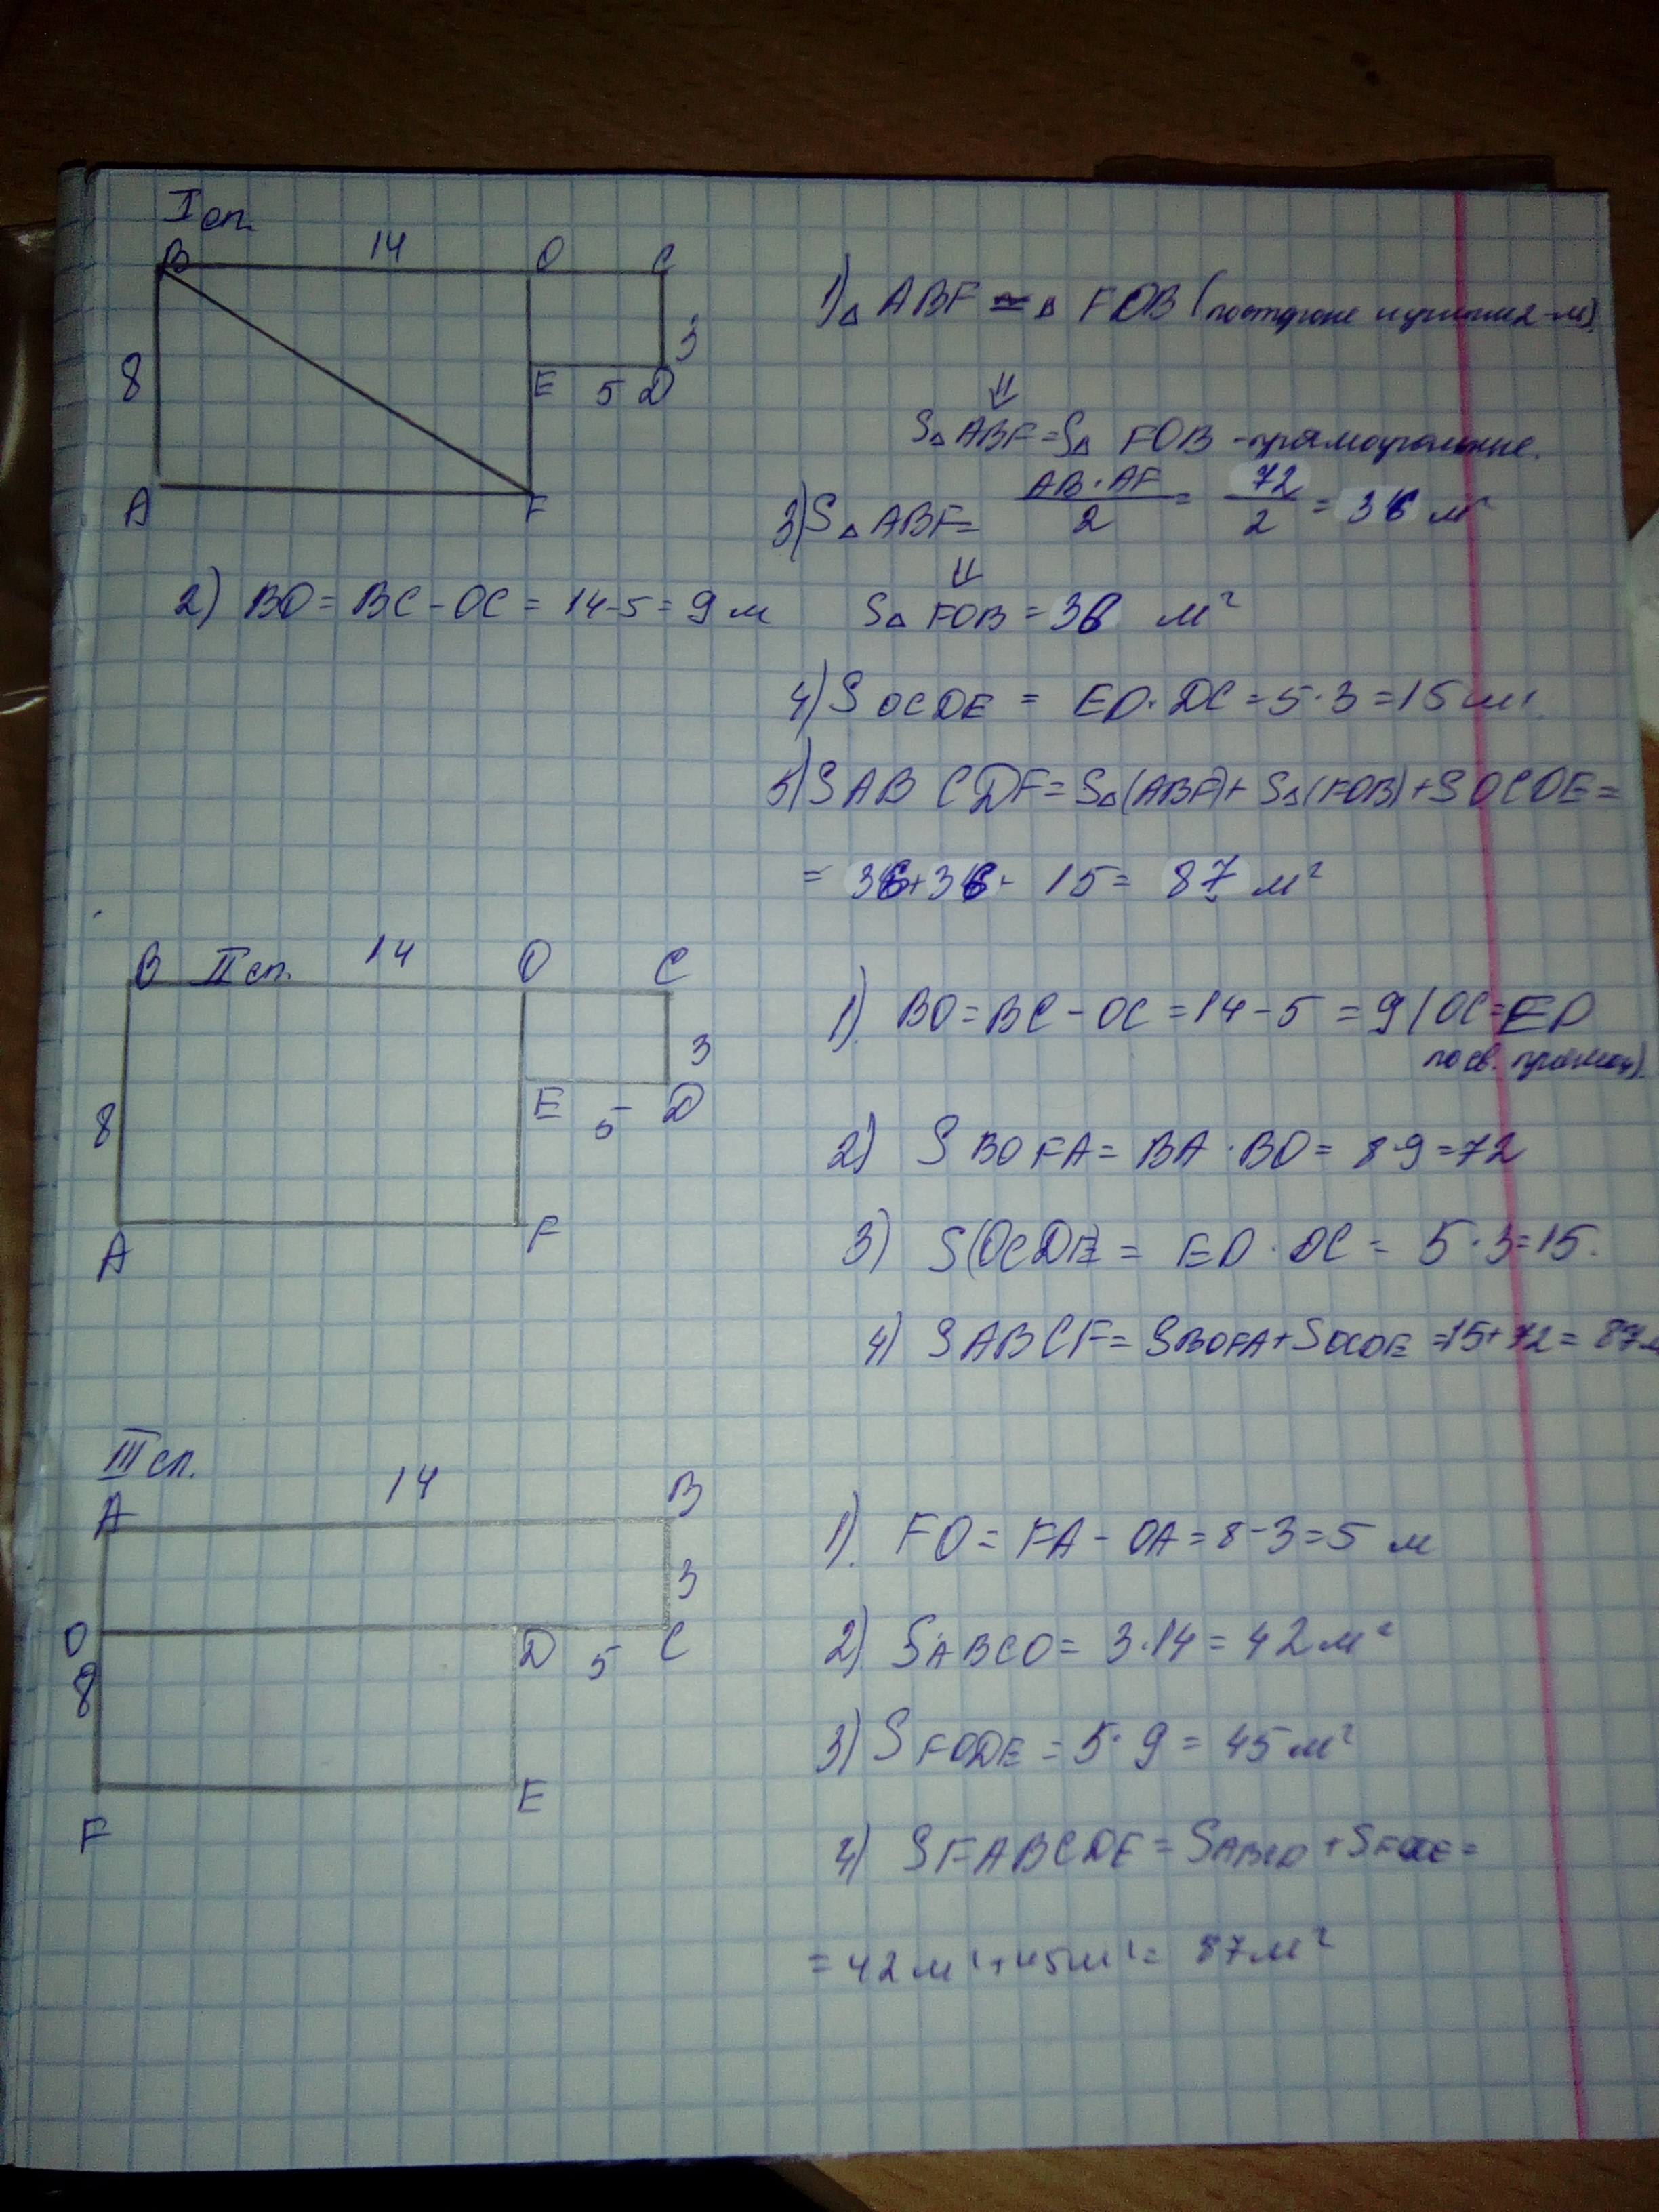 I сп.
B 14 O C
8 3
E 5 D
A F
1) △ ABF = △ FOB (
⇓
S△ ABF = S△ FOB - прямоугольные.
3) S△ ABF = AB · AF / 2 = 72 / 2 = 36 м²
⇓
2) BO = BC - OC = 14 - 5 = 9 м
S△ FOB = 36 м²
4) S OCDE = ED · DC = 5 · 3 = 15 м²
5) S ABCDF = S△(ABF) + S△(FOB) + S OCDE =
= 36 + 36 - 15 = 87 м²
B II сп. 14 O C
3
8 E 5 D
A F
1) BO = BC - OC = 14 - 5 = 9 (OC = ED
по св.
2) S BOFA = BA · BO = 8 · 9 = 72
3) S(OCDE) = ED · DC = 5 · 3 = 15.
4) S ABCF = S BOFA + S OCDE = 15 + 72 = 87 м
III сп.
A 14 B
3
O D 5 C
8
F E
1) FO = FA - OA = 8 - 3 = 5 м
2) S ABCO = 3 · 14 = 42 м²
3) S FODE = 5 · 9 = 45 м²
4) S FABCDE = S ABCO + S FODE =
= 42 м² + 45 м² = 87 м²